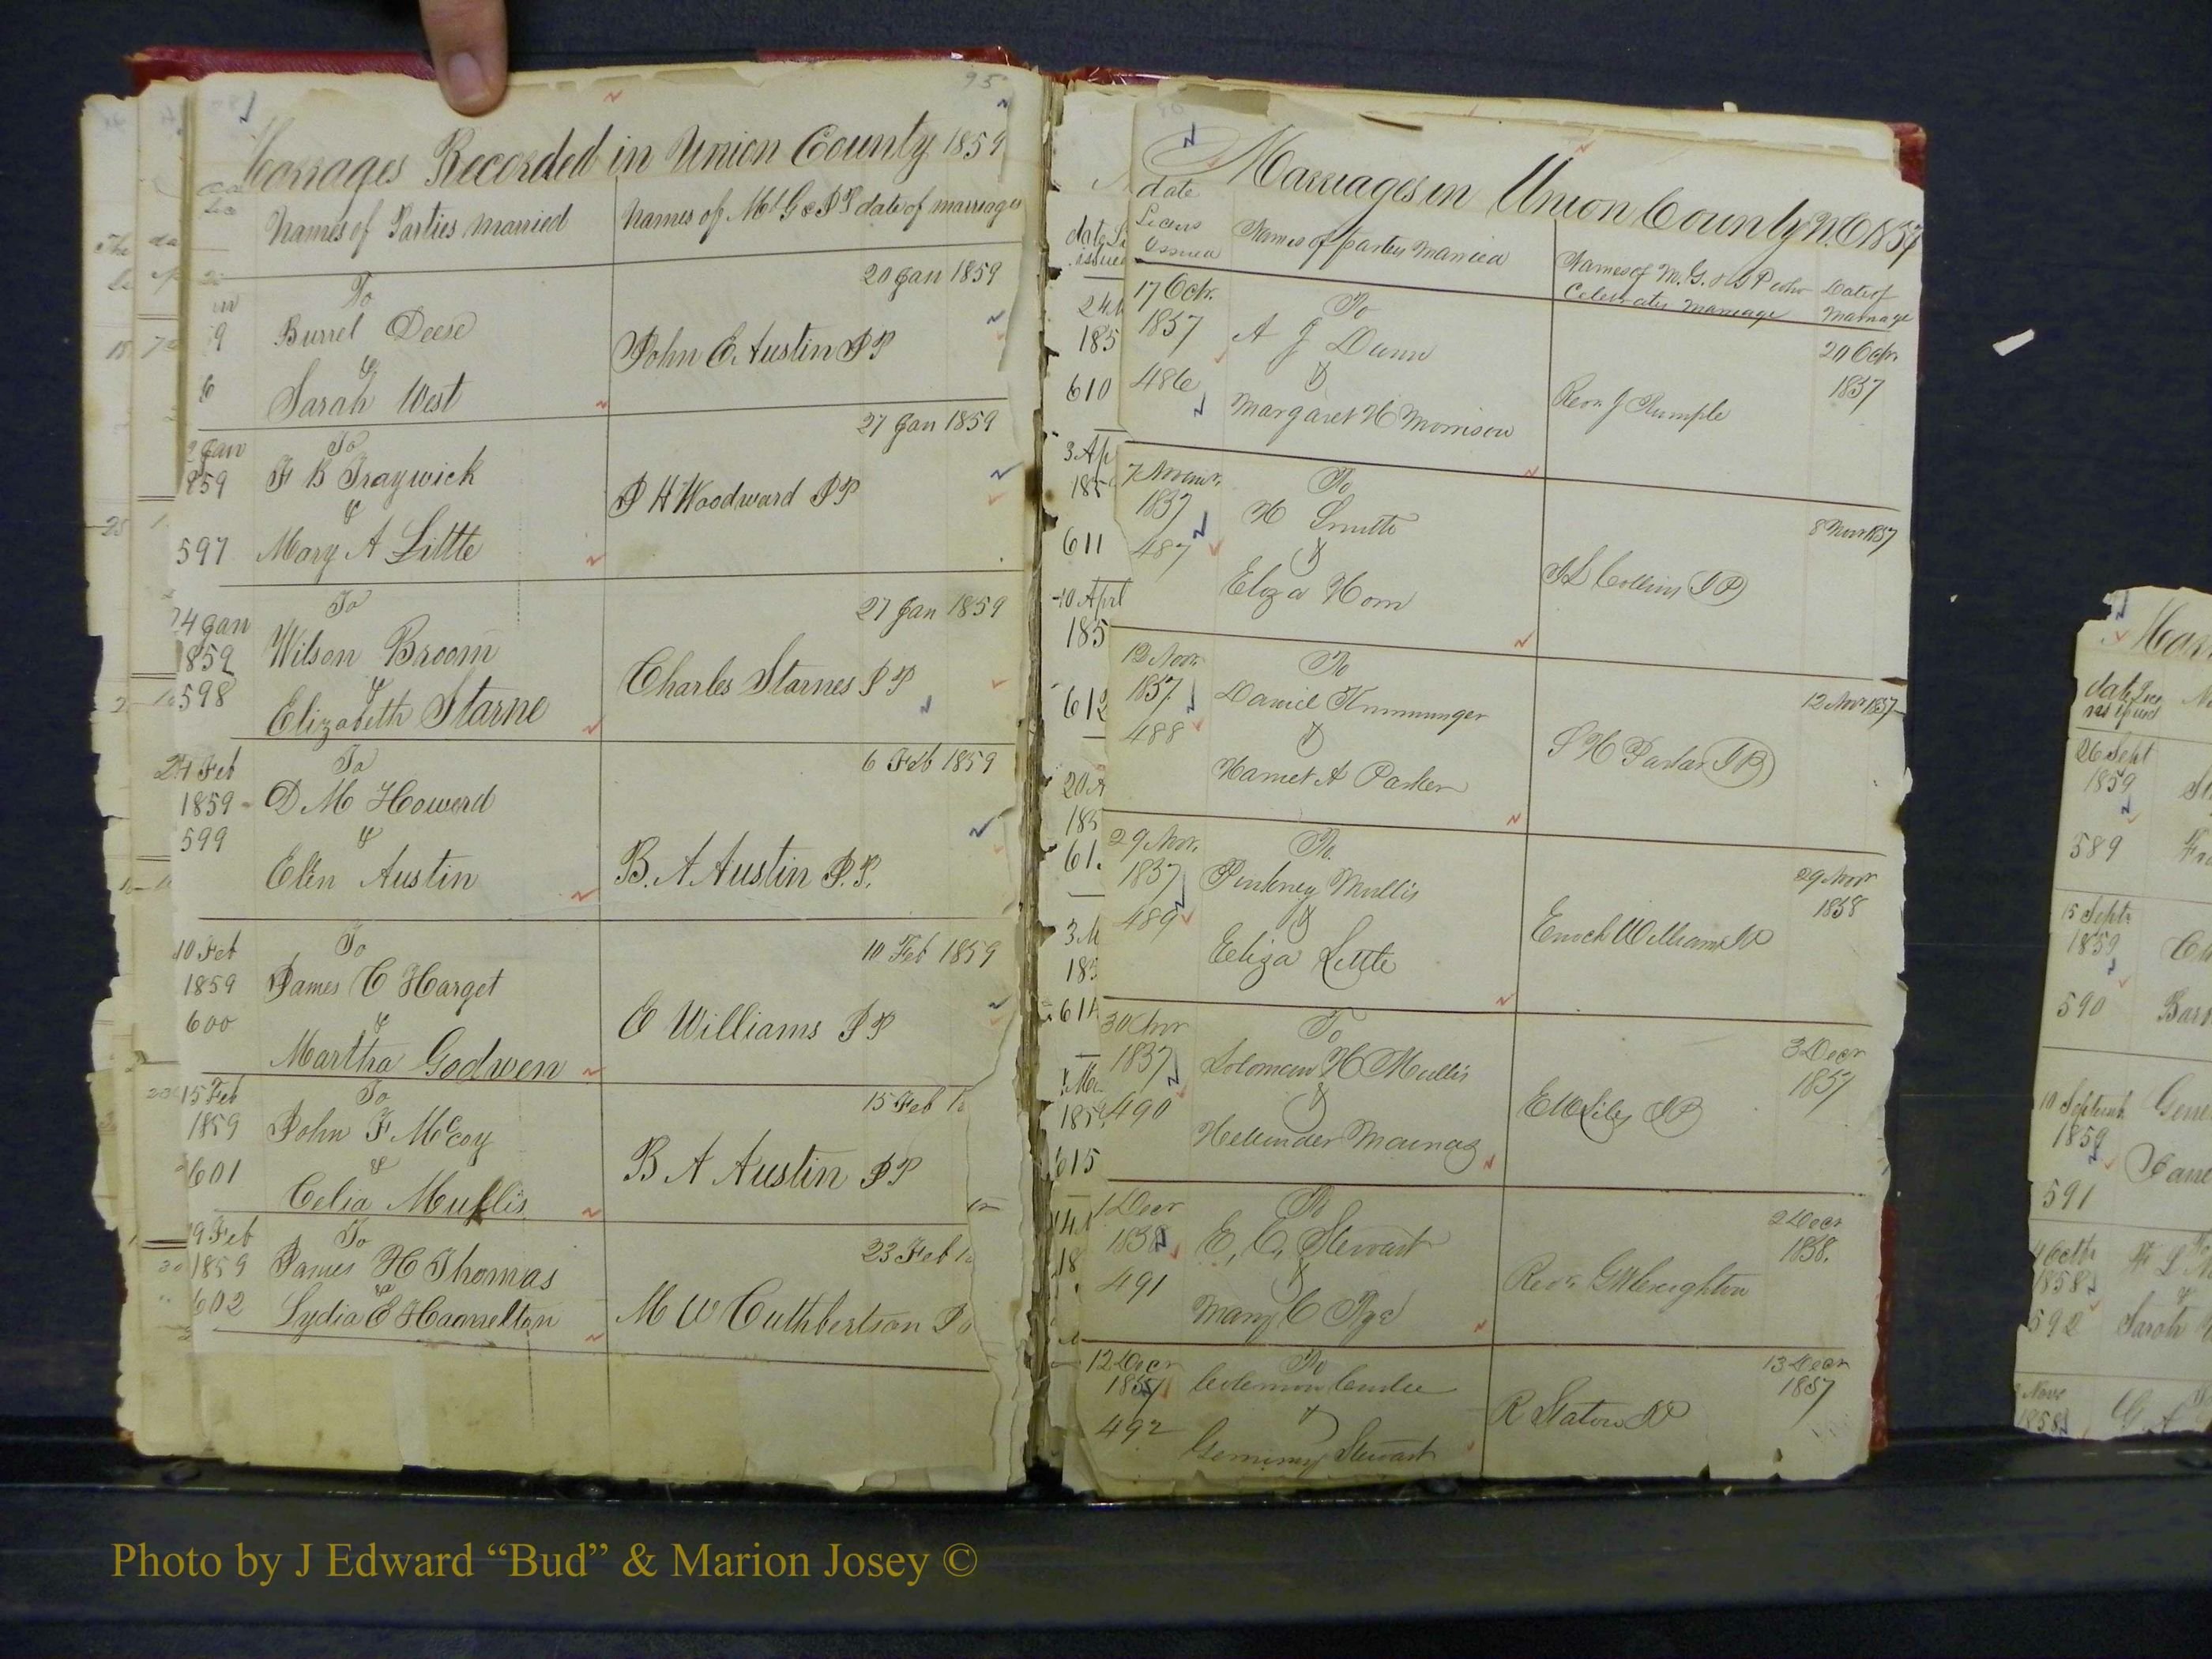 95
Marrages Recorded in Union County 1859
Names of Parties married
Names of M G & JP date of marriage
20 Jan 1859
To
Burrel Deese
&
Sarah West
John C Austin JP
9
6
2 Jan
859
597
To
F B Traywick
&
Mary A Little
27 Jan 1859
J H Woodward JP
24 Jan
1859
598
To
Wilson Broom
&
Elizabeth Starne
27 Jan 1859
Charles Starnes JP
24 Feb
1859
599
To
D M Howerd
&
Elen Austin
6 Feb 1859
B. A Austin J.P.
10 Feb
1859
600
To
James C Harget
&
Martha Godwen
10 Feb 1859
E Williams JP
15 Feb
1859
601
To
John F McCoy
&
Celia Mullis
15 Feb 1
B A Austin JP
19 Feb
1859
602
To
James H Thomas
&
Lydia E Hamelton
23 Feb 1
M W Cuthbertson J
610
3 Ap
611
10 Aprl
185
612
61
3 M
614
615
Marriages in Union County N.C 1857
date
Licens
Issued
Names of parties Married
Names of M.G. & JP who
Celebrates Marriage
Date of
Marriage
17 Octr.
1857
486
To
A J Dunn
&
Margaret H Morrison
Revr. J Rumple
20 Octr.
1857
1857
487
To
H Smith
&
Eliza Horn
Collins JP
8 Novr 1857
12 Novr.
1857
488
To
Daniel
&
Harriet A Parker
S H Parker JP
12 Novr 1857
29 Novr.
1857
489
To
Pinkney Mullis
&
Eliza Little
Enoch Williams JP
29 Novr
1858
30 Novr
1857
490
To
Solomon H Mullis
&
3 Decr
1857
1 Decr
1858
491
To
E. C. Stewart
&
Mary C
Revr.
2 Decr
1858.
12 Decr
1857
492
To
&
Stewart
R Staton JP
13 Decr
1857
date
26 Sept
1859
589
15 Septr
1859
590
10 Septemb
1859
591
4 Octr
1858
592
Sarah
Nove
1858
Photo by J Edward “Bud” & Marion Josey ©